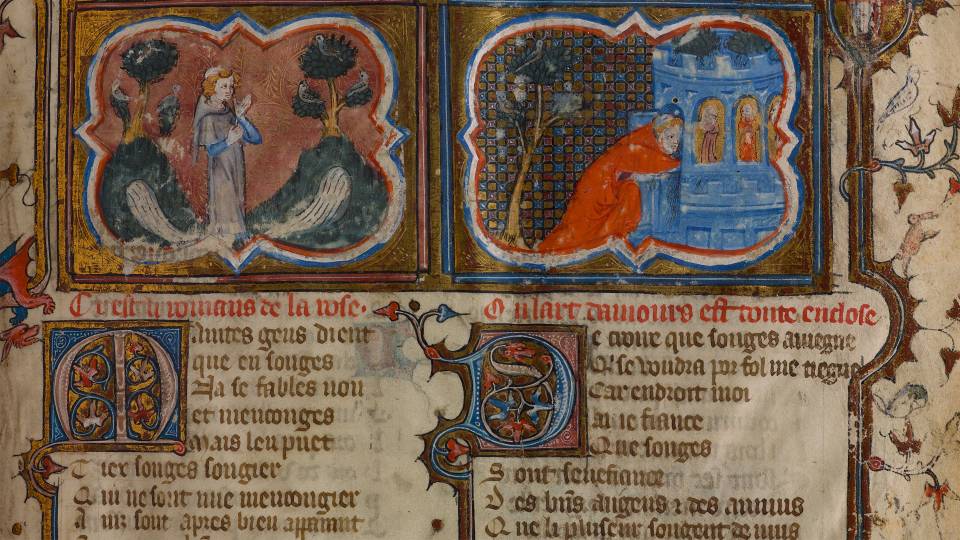 C'est li romans de la rose.
Maintes gens dient
que en songes
Na se fables non
et menconges
Mais len puet
Tier songes songier
Qui ne sont mie mencongier
Ains sont apres bien apparant
Ou lart damours est toute enclose
e croie que songes aviegne
Qi se voudra por fol me tiegne
Car endroit moi
ai ie fiance
Que songes
Sont senefiance
Des biens as gens et des anuis
Que li pluiseur songent de nuis